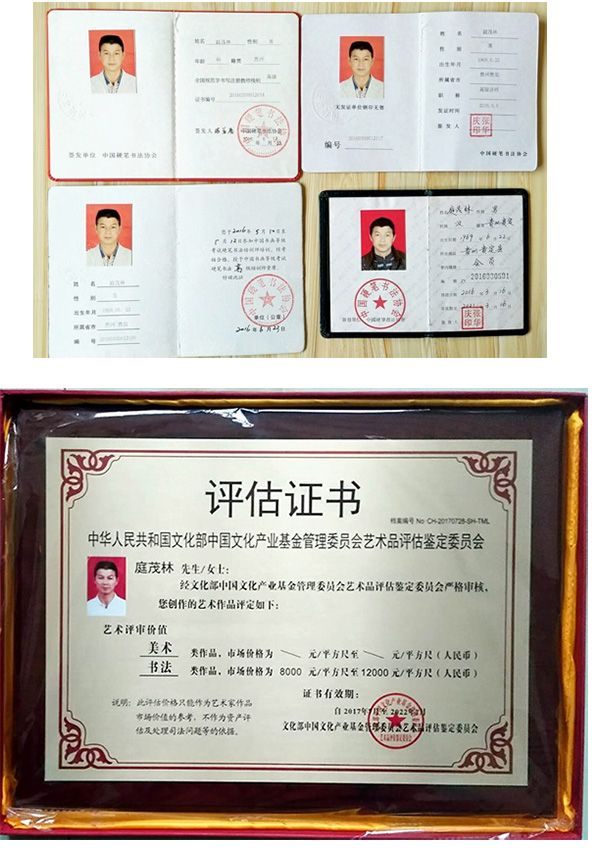 姓名 庭茂林 性别 男
年龄 籍贯 贵州
全国规范字书写注册教师级别 高级
证书编号
签发人
签发单位 中国硬笔书法协会
中国硬笔书法协会
姓名 庭茂林
性别 男
出生年月 1969.6.22
所属省市 贵州贵定
职称
发证时间
签发人
无发证单位钢印无效
编号
中国硬笔书法协会
姓名 庭茂林
性别 男
出生年月
所属省市 贵州 贵定
证书编号
您于2016年5月10日至
5月12日参加中国书画等级
考试硬笔书法培训师培训，经考
核合格，授予中国书画等级考
试硬笔书法高级培训师资质。
特颁此证
单位（公章）
2016年6月23日
姓名 庭茂林 性别 男
汉 贵州贵定
出生日期 1969年6月22日
贵州贵定县
会员
2016年3月16日
中国硬笔书法协会
评估证书
档案编号 No CH-20170728-SH-TML
中华人民共和国文化部中国文化产业基金管理委员会艺术品评估鉴定委员会
庭茂林 先生/女士：
经文化部中国文化产业基金管理委员会艺术品评估鉴定委员会严格审核，
您创作的艺术作品评定如下：
艺术评审价值
美术 类作品，市场价格为 元/平方尺至 元/平方尺（人民币）
书法 类作品，市场价格为 8000 元/平方尺至 12000 元/平尺（人民币）
证书有效期：
自 2017年7月至 2022年8月
说明：此评估价格只能作为艺术家作品
市场价值的参考，不作为资产评
估及处理司法问题等的依据。
文化部中国文化产业基金管理委员会艺术品评估鉴定委员会